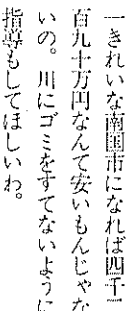 一きれいな南国市になれば四千二
百九十万円なんて安いもんじゃな
いの。川にゴミをすてないように
指導もしてほしいわ。